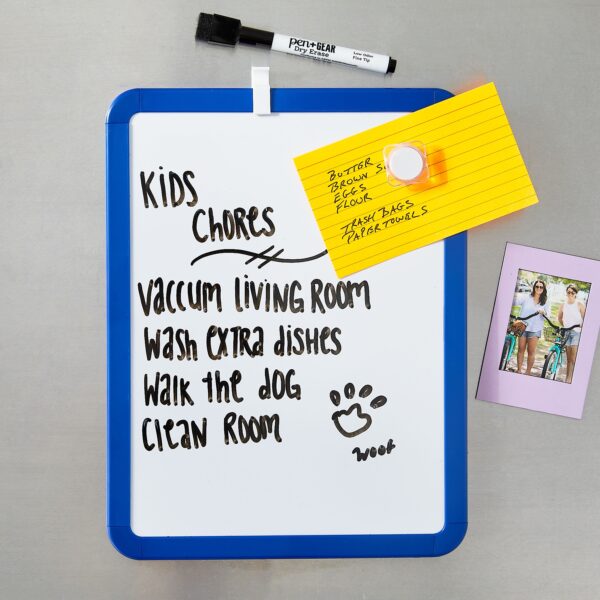 pen+GEAR
Dry Erase
Low Odor
Fine Tip
BUTTER
BROWN
EGGS
FLOUR
TRASH BAGS
PAPER TOWELS
KIDS
CHORES
VACCUM LIVING ROOM
WASH EXTRA DISHES
WALK THE DOG
CLEAN ROOM
WOOF